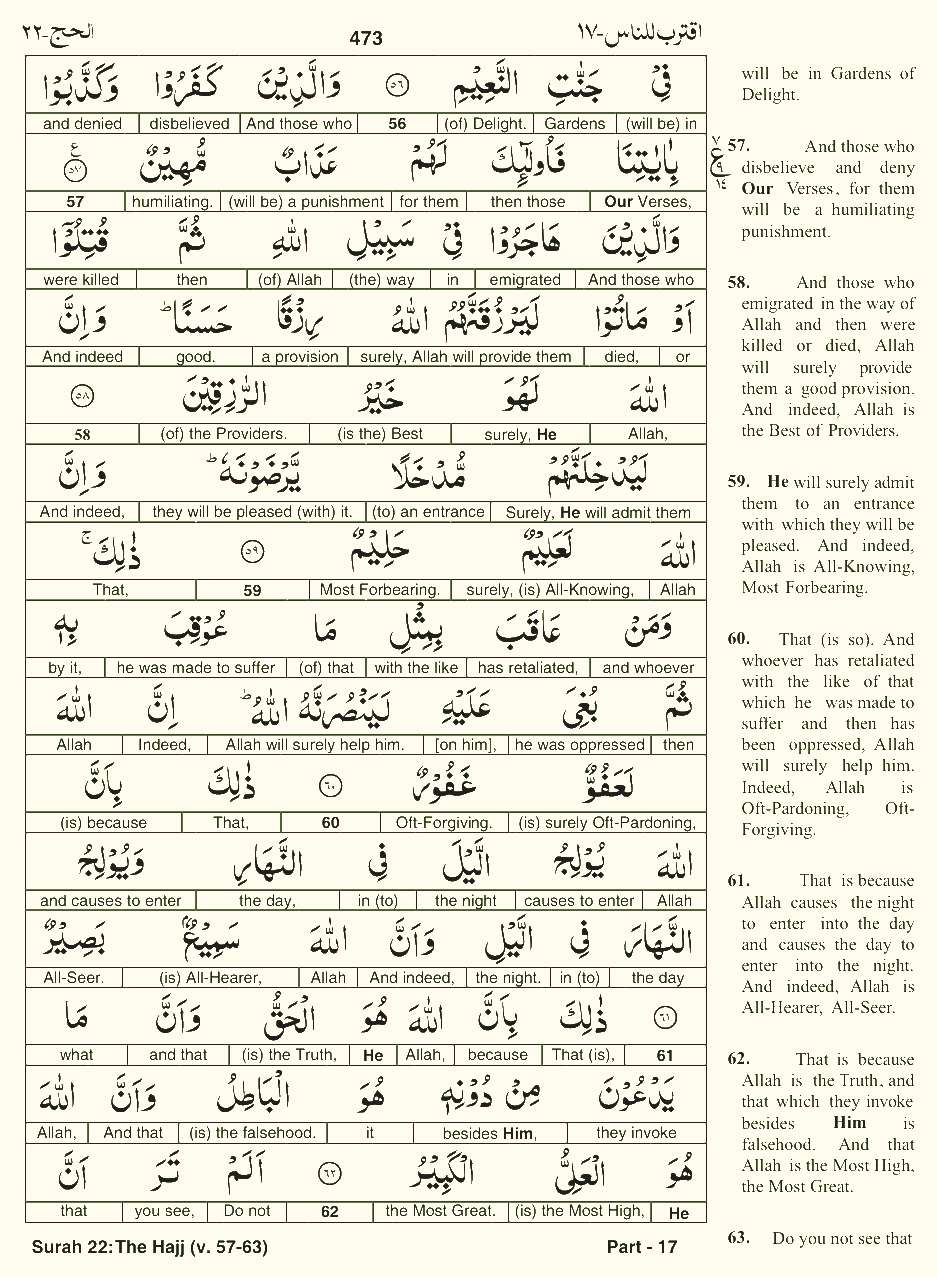 الحج-٢٢
473
اقترب للناس-١٧
فِىْ جَنّٰتِ النَّعِيْمِ ﴿٥٦﴾ وَالَّذِيْنَ كَفَرُوْا وَكَذَّبُوْا
and denied | disbelieved | And those who | 56 | (of) Delight. | Gardens | (will be) in
بِاٰيٰتِنَا فَاُولٰٓئِكَ لَهُمْ عَذَابٌ مُّهِيْنٌ ﴿٥٧﴾ ع
57 | humiliating. | (will be) a punishment | for them | then those | Our Verses,
وَالَّذِيْنَ هَاجَرُوْا فِىْ سَبِيْلِ اللّٰهِ ثُمَّ قُتِلُوْٓا
were killed | then | (of) Allah | (the) way | in | emigrated | And those who
اَوْ مَاتُوْا لَيَرْزُقَنَّهُمُ اللّٰهُ رِزْقًا حَسَنًا ؕ وَاِنَّ
And indeed | good. | a provision | surely, Allah will provide them | died, | or
اللّٰهَ لَهُوَ خَيْرُ الرّٰزِقِيْنَ ﴿٥٨﴾
58 | (of) the Providers. | (is the) Best | surely, He | Allah,
لَيُدْخِلَنَّهُمْ مُّدْخَلًا يَّرْضَوْنَهٗ ؕ وَاِنَّ
And indeed, | they will be pleased (with) it. | (to) an entrance | Surely, He will admit them
اللّٰهَ لَعَلِيْمٌ حَلِيْمٌ ﴿٥٩﴾ ذٰلِكَ ۚ
That, | 59 | Most Forbearing. | surely, (is) All-Knowing, | Allah
وَمَنْ عَاقَبَ بِمِثْلِ مَا عُوْقِبَ بِهٖ
by it, | he was made to suffer | (of) that | with the like | has retaliated, | and whoever
ثُمَّ بُغِىَ عَلَيْهِ لَيَنْصُرَنَّهُ اللّٰهُ ؕ اِنَّ اللّٰهَ
Allah | Indeed, | Allah will surely help him. | [on him], | he was oppressed | then
لَعَفُوٌّ غَفُوْرٌ ﴿٦٠﴾ ذٰلِكَ بِاَنَّ
(is) because | That, | 60 | Oft-Forgiving. | (is) surely Oft-Pardoning,
اللّٰهَ يُوْلِجُ الَّيْلَ فِى النَّهَارِ وَيُوْلِجُ
and causes to enter | the day, | in (to) | the night | causes to enter | Allah
النَّهَارَ فِى الَّيْلِ وَاَنَّ اللّٰهَ سَمِيْعٌۢ بَصِيْرٌ
All-Seer. | (is) All-Hearer, | Allah | And indeed, | the night. | in (to) | the day
﴿٦١﴾ ذٰلِكَ بِاَنَّ اللّٰهَ هُوَ الْحَقُّ وَاَنَّ مَا
what | and that | (is) the Truth, | He | Allah, | because | That (is), | 61
يَدْعُوْنَ مِنْ دُوْنِهٖ هُوَ الْبَاطِلُ وَاَنَّ اللّٰهَ
Allah, | And that | (is) the falsehood. | it | besides Him, | they invoke
هُوَ الْعَلِىُّ الْكَبِيْرُ ﴿٦٢﴾ اَلَمْ تَرَ اَنَّ
that | you see, | Do not | 62 | the Most Great. | (is) the Most High, | He
Surah 22: The Hajj (v. 57-63)
Part - 17
will be in Gardens of
Delight.
٧
ع
٩
١٤
57. And those who
disbelieve and deny
Our Verses, for them
will be a humiliating
punishment.
58. And those who
emigrated in the way of
Allah and then were
killed or died, Allah
will surely provide
them a good provision.
And indeed, Allah is
the Best of Providers.
59. He will surely admit
them to an entrance
with which they will be
pleased. And indeed,
Allah is All-Knowing,
Most Forbearing.
60. That (is so). And
whoever has retaliated
with the like of that
which he was made to
suffer and then has
been oppressed, Allah
will surely help him.
Indeed, Allah is
Oft-Pardoning, Oft-
Forgiving.
61. That is because
Allah causes the night
to enter into the day
and causes the day to
enter into the night.
And indeed, Allah is
All-Hearer, All-Seer.
62. That is because
Allah is the Truth, and
that which they invoke
besides Him is
falsehood. And that
Allah is the Most High,
the Most Great.
63. Do you not see that